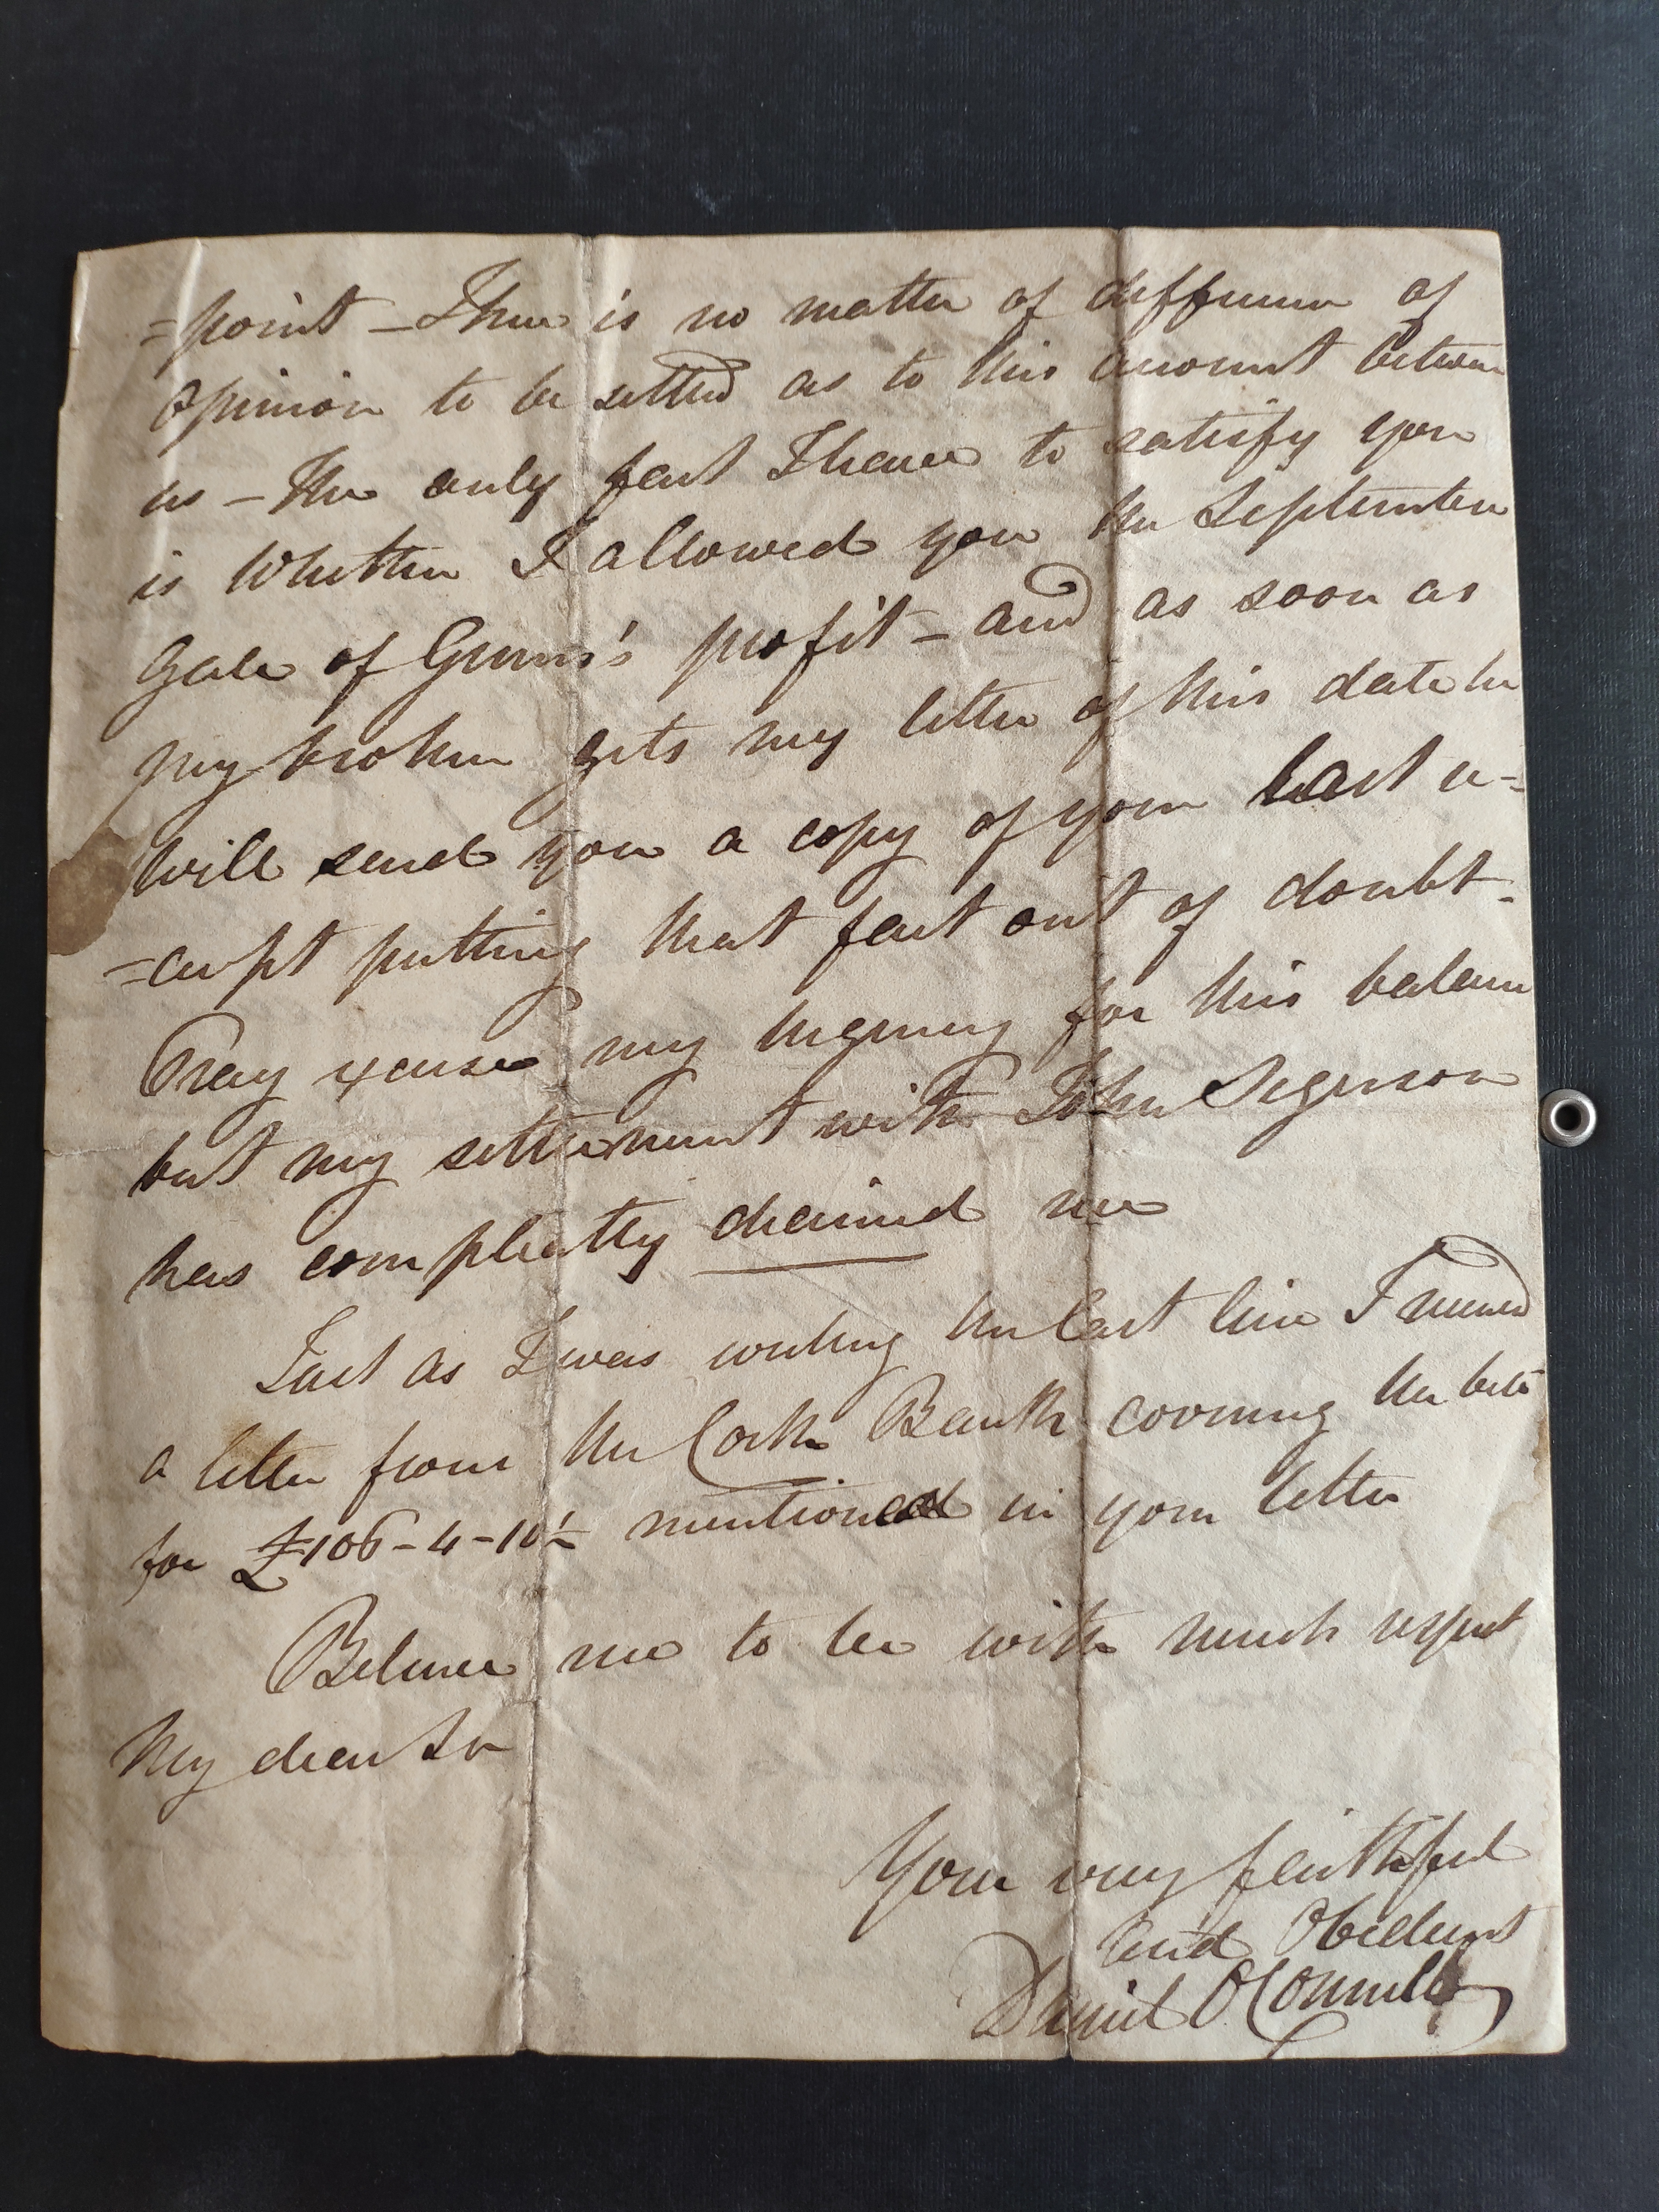 =point – There is no matter of difference of
opinion to be settled as to this account between
us – The only fact I have to satisfy you
is Whether I allowed you the September
Gale of Gunn's profit – and as soon as
my brother gets my letter of this date he
will send you a copy of your last re=
=ceipt putting that fact out of doubt –
Pray excuse my urgency for this balance
but my settlement with John Segerson
has compleatly drained me
Just as I was writing the last line I received
a letter from the Cork Bank covering the bill
for £106–4–10½ mentioned in your letter
Believe me to be with much respect
My dear Sir
Your very faithful
and Obedient
Daniel O'Connell